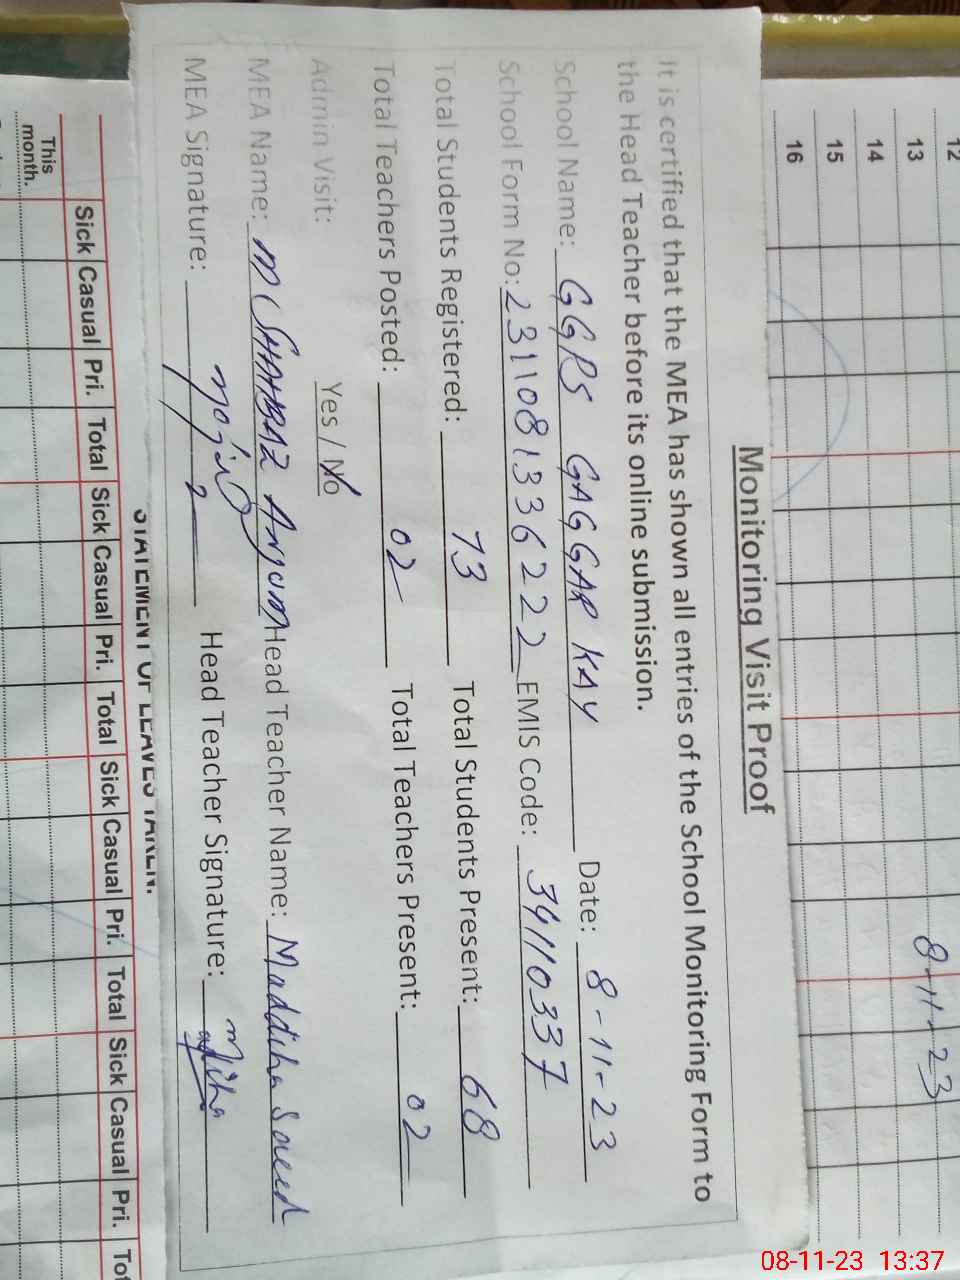 12
13
14
15
16
8-11-23
Monitoring Visit Proof
It is certified that the MEA has shown all entries of the School Monitoring Form to
the Head Teacher before its online submission.
School Name: GGPS GAGGAR KAY Date: 8-11-23
School Form No: 2311081336222 EMIS Code: 34110337
Total Students Registered: 73 Total Students Present: 68
Total Teachers Posted: 02 Total Teachers Present: 02
Admin Visit: Yes / No
MEA Name: M SHAHBAZ Anjum Head Teacher Name: Maddiha Saeed
MEA Signature: Head Teacher Signature:
STATEMENT OF LEAVES TAKEN.
Sick Casual Pri. Total Sick Casual Pri. Total Sick Casual Pri. Total Sick Casual Pri. Tot
This
month.
08-11-23 13:37